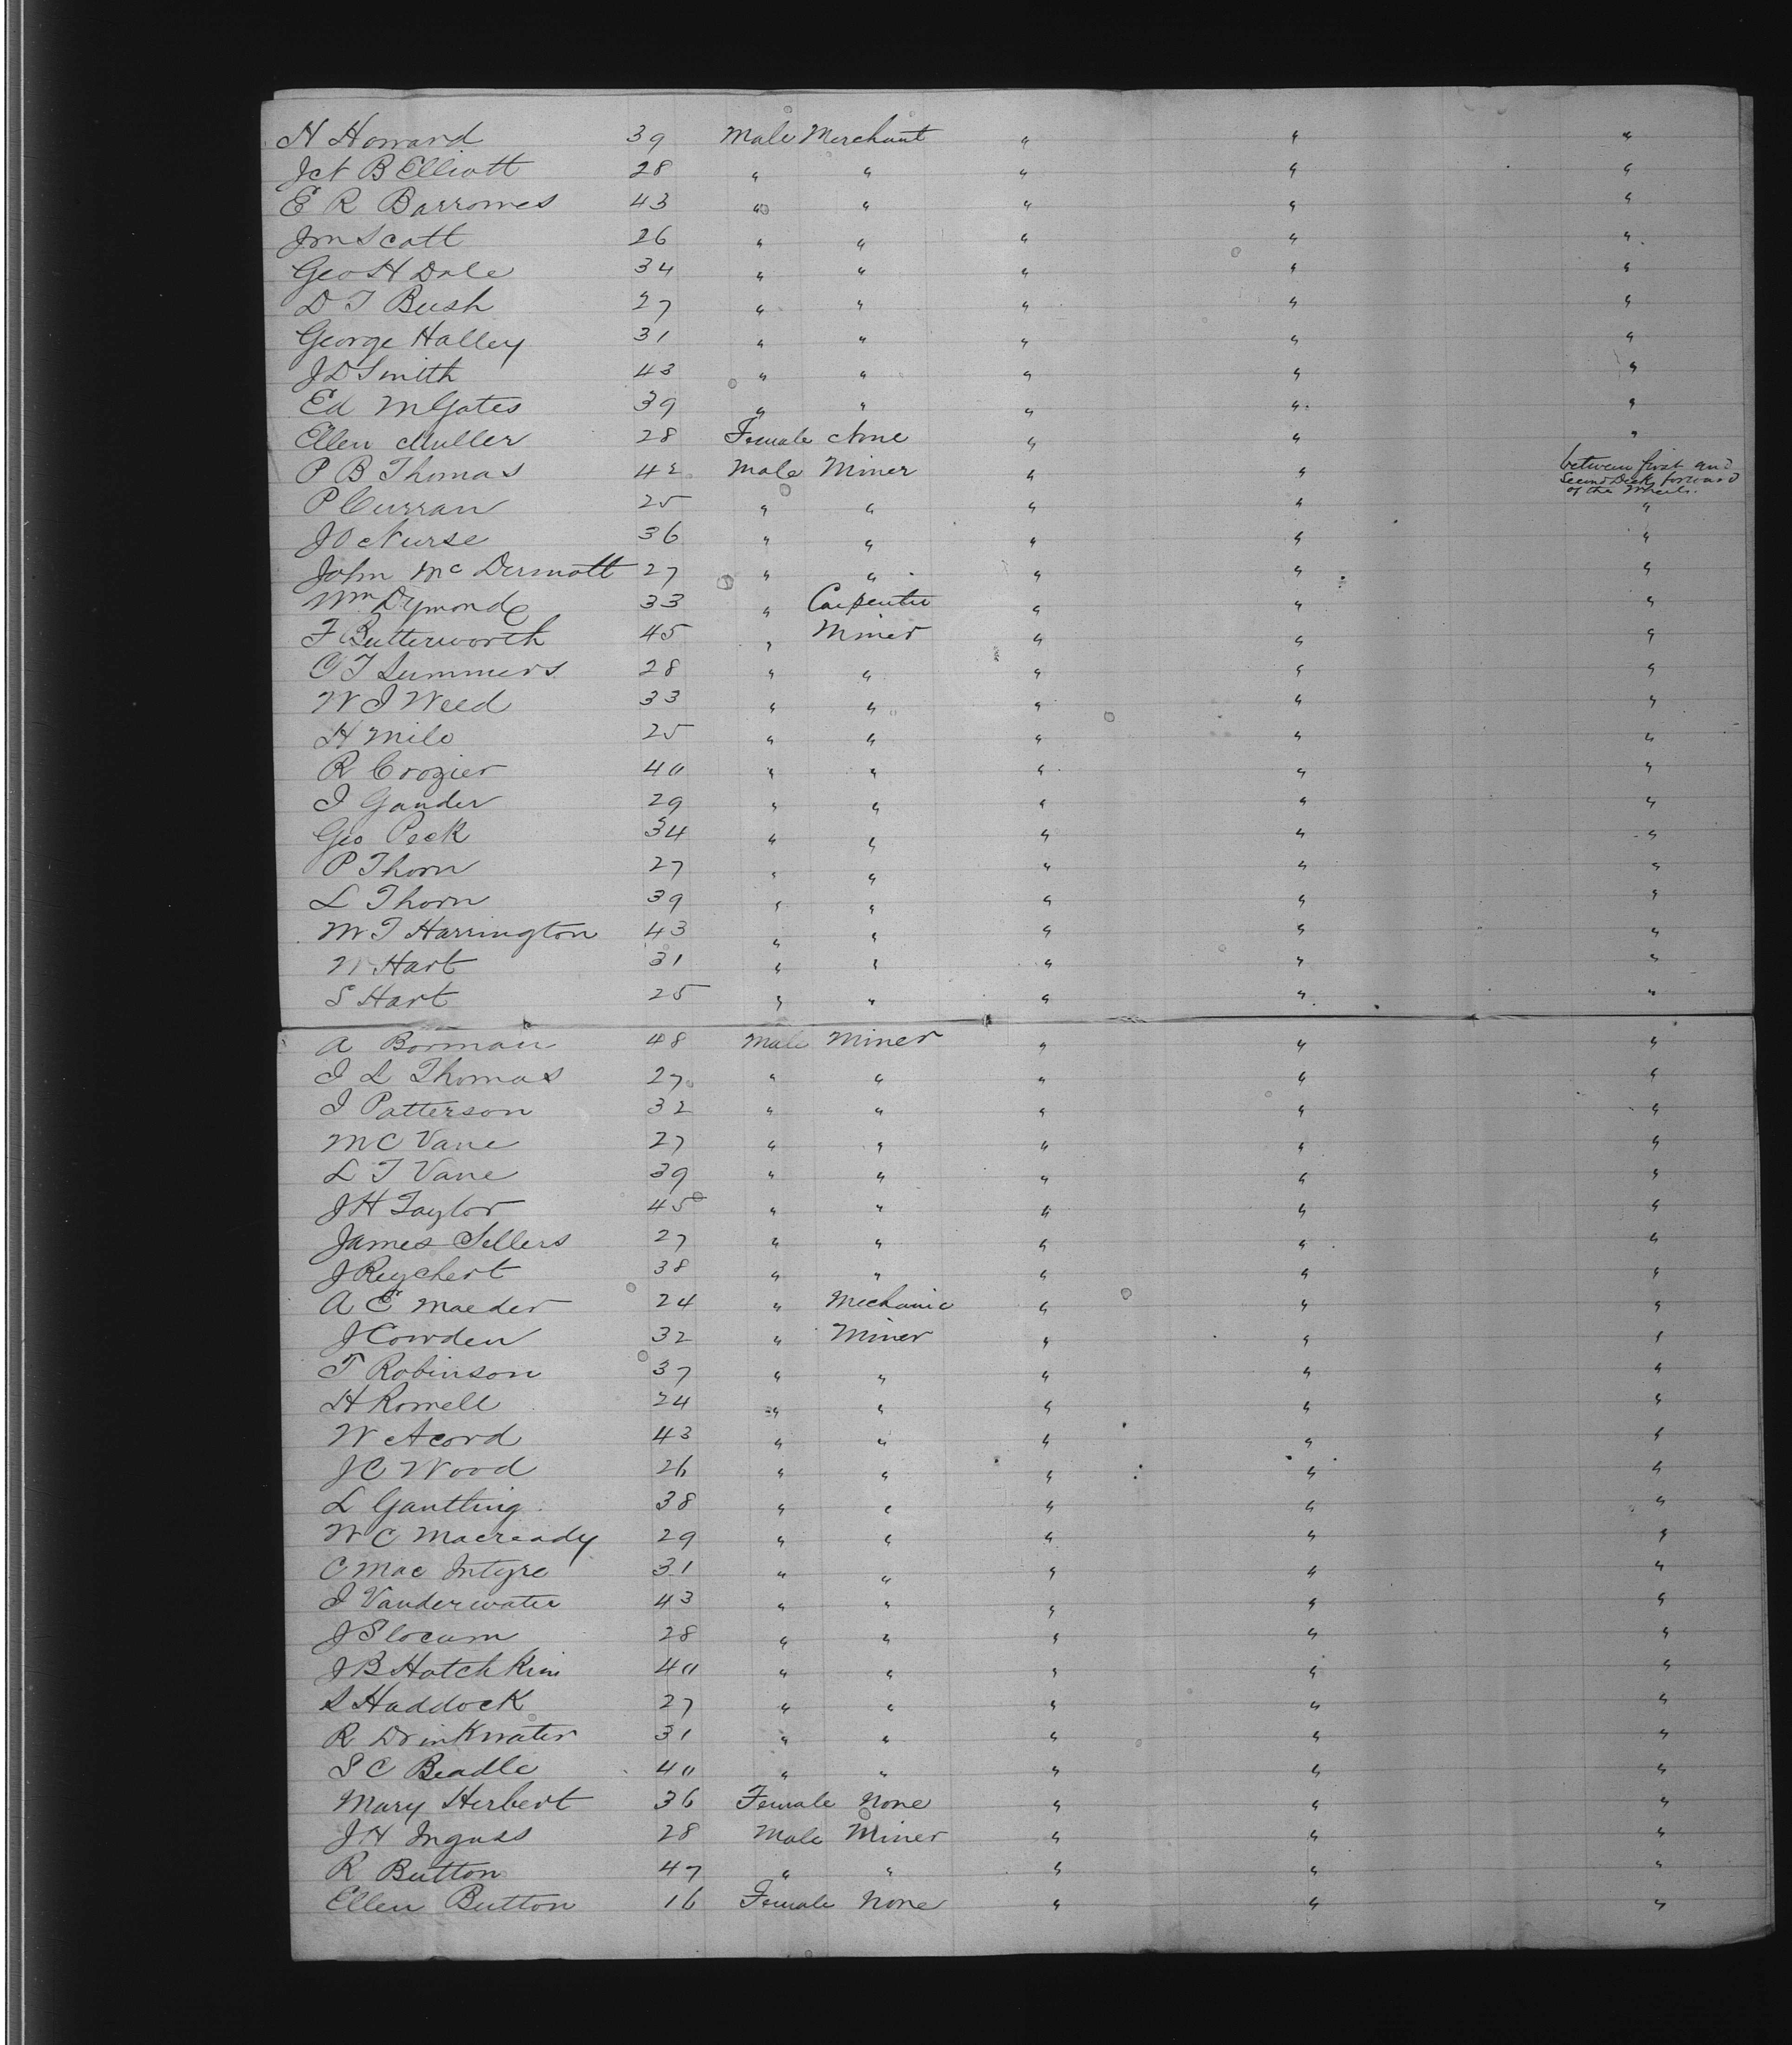 H Howard 39 Male Merchant " " "
Jct B Elliott 28 " " " " "
E R Barrowes 43 " " " " "
Jm Scott 26 " " " " "
Geo H Dale 34 " " " " "
D T Bush 27 " " " " "
George Halley 31 " " " " "
J D Smith 43 " " " " "
Ed M Gates 39 " " " " "
Ellen Muller 28 Female None " " "
P B Thomas 42 Male Miner " " between first and Second Deck forward of the Wheels.
P Curran 25 " " " " "
J O Nurse 36 " " " " "
John McDermott 27 " " " " "
Wm Dymond 33 " Carpenter " " "
F Butterworth 45 " Miner " " "
O T Summers 28 " " " " "
W I Weed 33 " " " " "
H Milo 25 " " " " "
R Crozier 40 " " " " "
I Gander 29 " " " " "
Geo Peck 34 " " " " "
P Thorn 27 " " " " "
L Thorn 39 " " " " "
M T Harrington 43 " " " " "
W Hart 31 " " " " "
S Hart 25 " " " " "
A Borman 48 Male Miner " " "
I L Thomas 27 " " " " "
I Patterson 32 " " " " "
M C Vane 27 " " " " "
L T Vane 39 " " " " "
J H Taylor 45 " " " " "
James Sellers 27 " " " " "
J Reychert 38 " " " " "
A E Maeder 24 " Mechanic " " "
J Cowden 32 " Miner " " "
T Robinson 37 " " " " "
H Rowell 24 " " " " "
W Acord 43 " " " " "
J C Wood 26 " " " " "
L Gantling 38 " " " " "
W C Macready 29 " " " " "
C Mac Intyre 31 " " " " "
I Vanderwater 43 " " " " "
J Slocum 28 " " " " "
J B Hotchkin 40 " " " " "
S Haddock 27 " " " " "
R Drinkwater 31 " " " " "
S C Beadle 40 " " " " "
Mary Herbert 36 Female None " " "
J H 28 Male Miner " " "
R Button 47 " " " " "
Ellen Button 16 Female None " " "